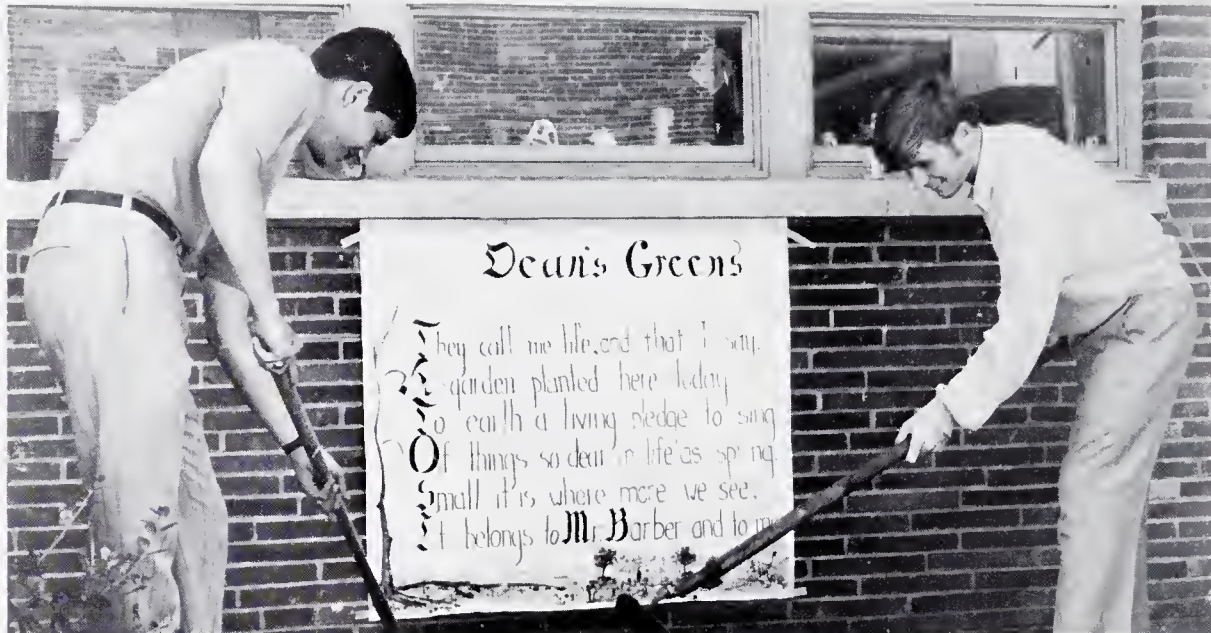 Dean's Greens
They call me life, and that i say.
A garden planted here today
To earth a living pledge to sing
Of things so dear in life as spring.
Small it is where more we see,
It belongs to Mr. Barber and to